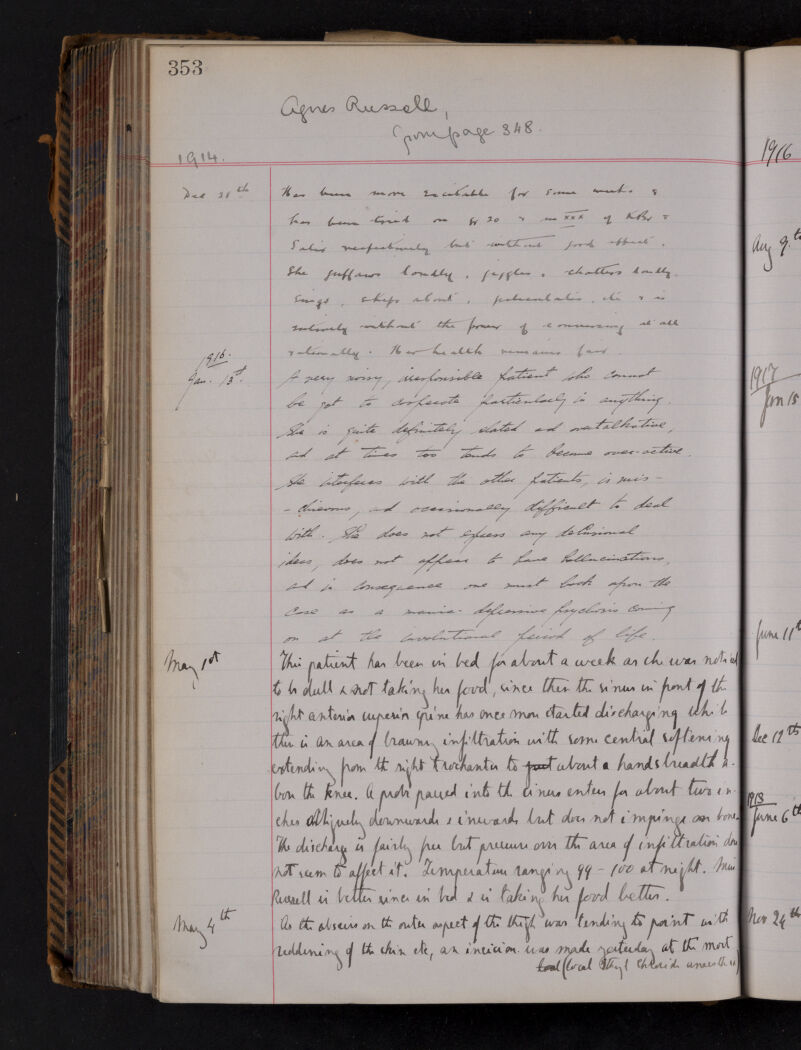 353
Agnes Russell,
from page 348.
1914.
Dec 28th Has been more excitable for some weeks &
has been tried on gr 20 & xxx of KBr &
respectively but without good effect.
She guffaws loudly, giggles, chatters loudly
sings, skips about, gesticulates, etc & is
entirely without the power of conversing at all
rationally. Her health remains fair.
1916.
Jan. 13th. A very noisy, irresponsible patient who cannot
be got to cooperate particularly in anything.
She is quite definitely elated and overtalkative,
and at times too tends to become over-active.
She interferes with the other patients, is mis-
-chievous, and occasionally difficult to deal
with. She does not express any delusional
ideas, does not appear to have hallucinations,
and in consequence one must look upon the
case as a manic-depressive psychosis coming
on at the involutional period of life.
May 1st This patient has been in bed for about a week as she was noticed
to be dull & not taking her food, since then the sinus in front of the
right anterior superior spine has once more started discharging while
there is an area of brawny infiltration with some central softening
extending from the right trochanter to just about a handsbreadth a-
bove the knee. A probe passed into the sinus enters for about two in-
ches obliquely downwards & inwards but does not impinge on bone.
The discharge is fairly free but pressure over the area of infiltration does
not seem to affect it. Temperature ranging 99 - 100 at night. Miss
Russell is better since in bed & is taking her food better.
May 4th As the abscess on the outer aspect of the thigh was tending to point with
reddening of the skin etc, an incision was made yesterday at the most
(local Ethyl Chloride anaesthesia)
1916
Aug 9th
1917
Jan 15
June 11th
Dec 12th
1918
June 6th
Nov 24th